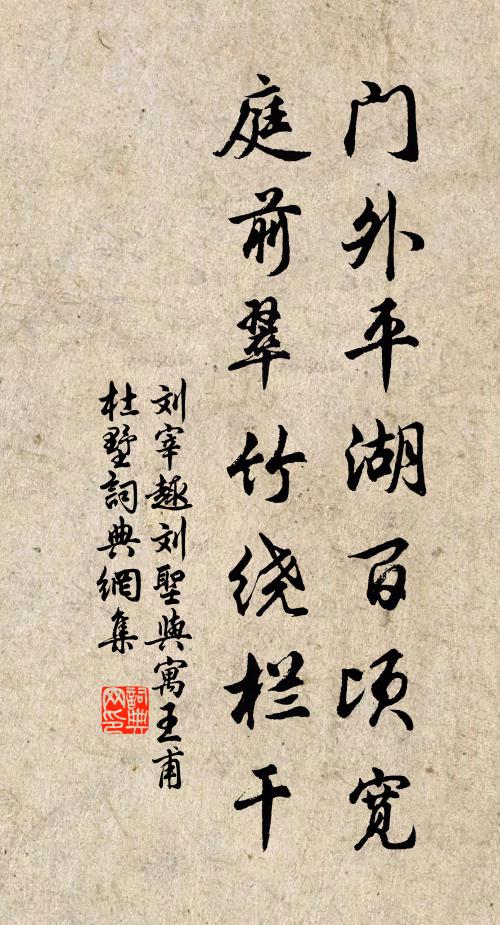 门外平湖百顷宽
庭前翠竹绕栏干
刘宰趣刘聖與寓王甫
杜墅詞典網集
詞典网印